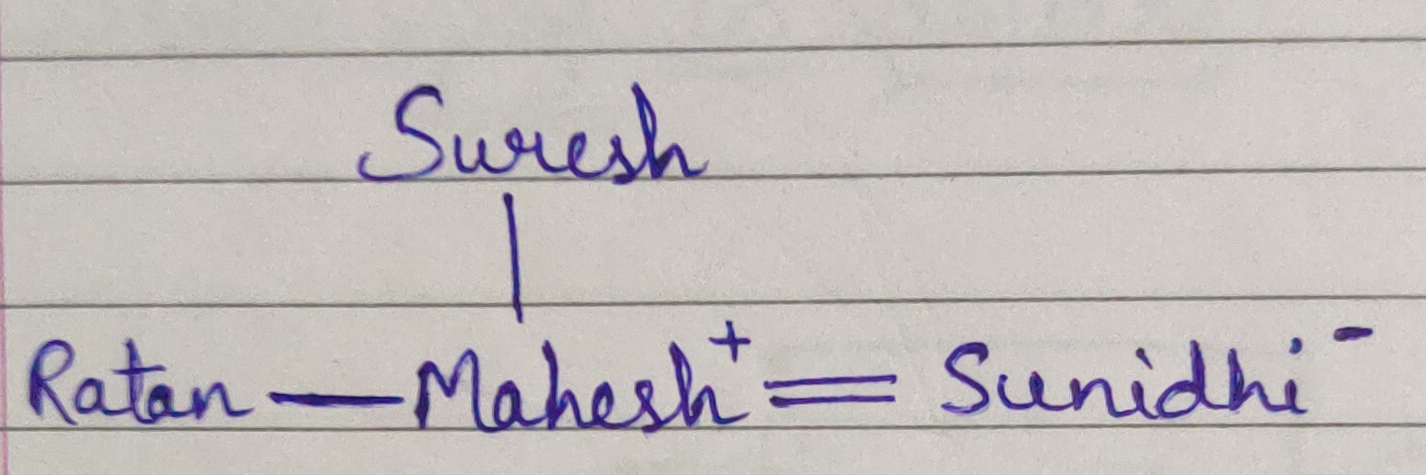 Suresh
|
Ratan — Mahesh⁺ = Sunidhi⁻